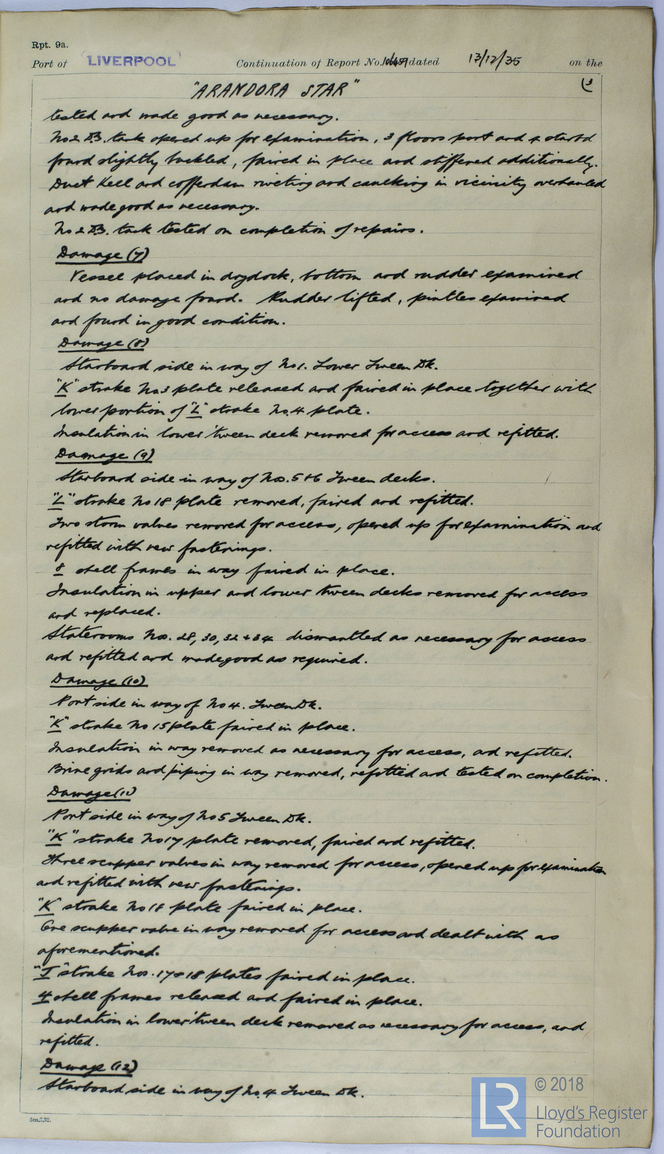 Rpt. 9a.
Port of LIVERPOOL Continuation of Report No. dated 13/12/35 on the
"ARANDORA STAR"
tested and made good as necessary.
No 2 D.B. tank opened up for examination, 3 floors port and 4 starbd
found slightly buckled, faired in place and stiffened additionally.
Duct Keel and cofferdam riveting and caulking in vicinity overhauled
and made good as necessary.
No 2 D.B. tank tested on completion of repairs.
Damage (7)
Vessel placed in drydock, bottom and rudder examined
and no damage found. Rudder lifted, pintles examined
and found in good condition.
Damage (8)
Starboard side in way of No 1. Lower Tween Dk.
"K" strake No. 3 plate released and faired in place together with
lower portion of "L" strake No. 4 plate.
Insulation in lower 'tween deck removed for access and refitted.
Damage (9)
Starboard side in way of Nos. 5 & 6 Tween decks.
"L" strake No 18 plate removed, faired and refitted.
Two storm valves removed for access, opened up for examination and
refitted with new fastenings.
8 shell frames in way faired in place.
Insulation in upper and lower tween decks removed for access
and replaced.
Staterooms Nos. 28, 30, 32 & 34 dismantled as necessary for access
and refitted and made good as required.
Damage (10)
Port side in way of No 4. Tween Dk.
"K" strake No 15 plate faired in place.
Insulation in way removed as necessary for access, and refitted.
Brine grids and piping in way removed, refitted and tested on completion.
Damage (11)
Port side in way of No 5 Tween Dk.
"K" strake No 17 plate removed, faired and refitted.
Three scupper valves in way removed for access, opened up for examination
and refitted with new fastenings.
"K" strake No 18 plate faired in place.
One scupper valve in way removed for access and dealt with as
aforementioned.
"J" strake Nos. 17 & 18 plates faired in place.
4 shell frames released and faired in place.
Insulation in lower 'tween deck removed as necessary for access, and
refitted.
Damage (12)
Starboard side in way of No 4 Tween Dk.
LR
© 2018
Lloyd's Register
Foundation